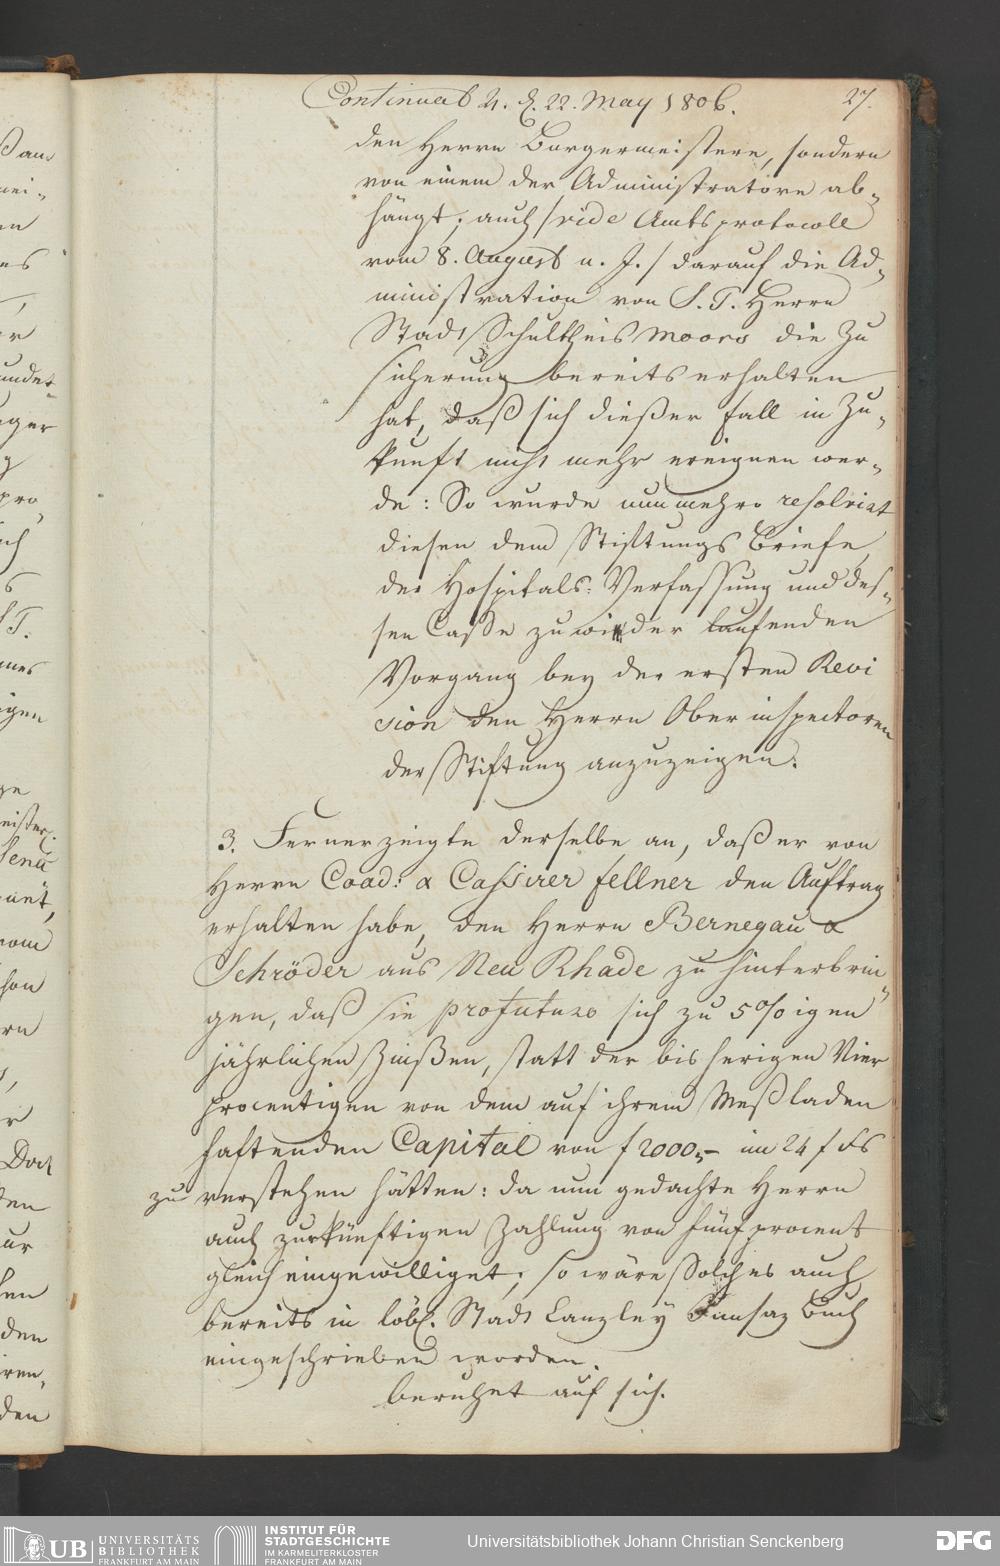 Continuat 4. d. 22. May 1806. 27.
den Herrn Burgermeistere, sondern
von einem der Administratore ab„
hängt; auch /vide Amtsprotocoll
vom 8. August u. J./ darauf die Ad„
ministration von S. T. Herrn
Stadt Schultheis Moors die Zu
sicherung bereits erhalten
hat, daß sich dießer Fall in Zu„
kunft nicht mehr ereignen wer„
de: So wurde nunmehro resolvirt
diesen dem Stiftungs Briefe,
der Hospitals: Verfassung und des„
sen Casse zuwieder laufenden
Vorgang bey der ersten Revi
sion den Herrn Ober inspectoren
der Stiftung anzuzeigen.
3. Ferner zeigte derselbe an, daß er von
Herrn Coad: & Cassirer Fellner den Auftrag
erhalten habe, den Herrn Bernegau &
Schröder aus Neu Rhade zu hinterbrin„
gen, daß sie profuturo sich zu 5%igen
jährlichen Zinßen, statt der bisherigen Vier
procentigen von dem auf ihrem Meßladen
haftenden Capital von f 2000,- im 24 f Fs
zu verstehen hätten: da nun gedachte Herrn
auch zur künftigen Zahlung von fünf procent
gleich eingewilliget; so wäre Solches auch
bereits in löbl. Stadt Canzley Innsaz Buch
eingeschrieben worden.
beruhet auf sich.
UB UNIVERSITÄTS
BIBLIOTHEK
FRANKFURT AM MAIN
INSTITUT FÜR
STADTGESCHICHTE
IM KARMELITERKLOSTER
FRANKFURT AM MAIN
Universitätsbibliothek Johann Christian Senckenberg
DFG